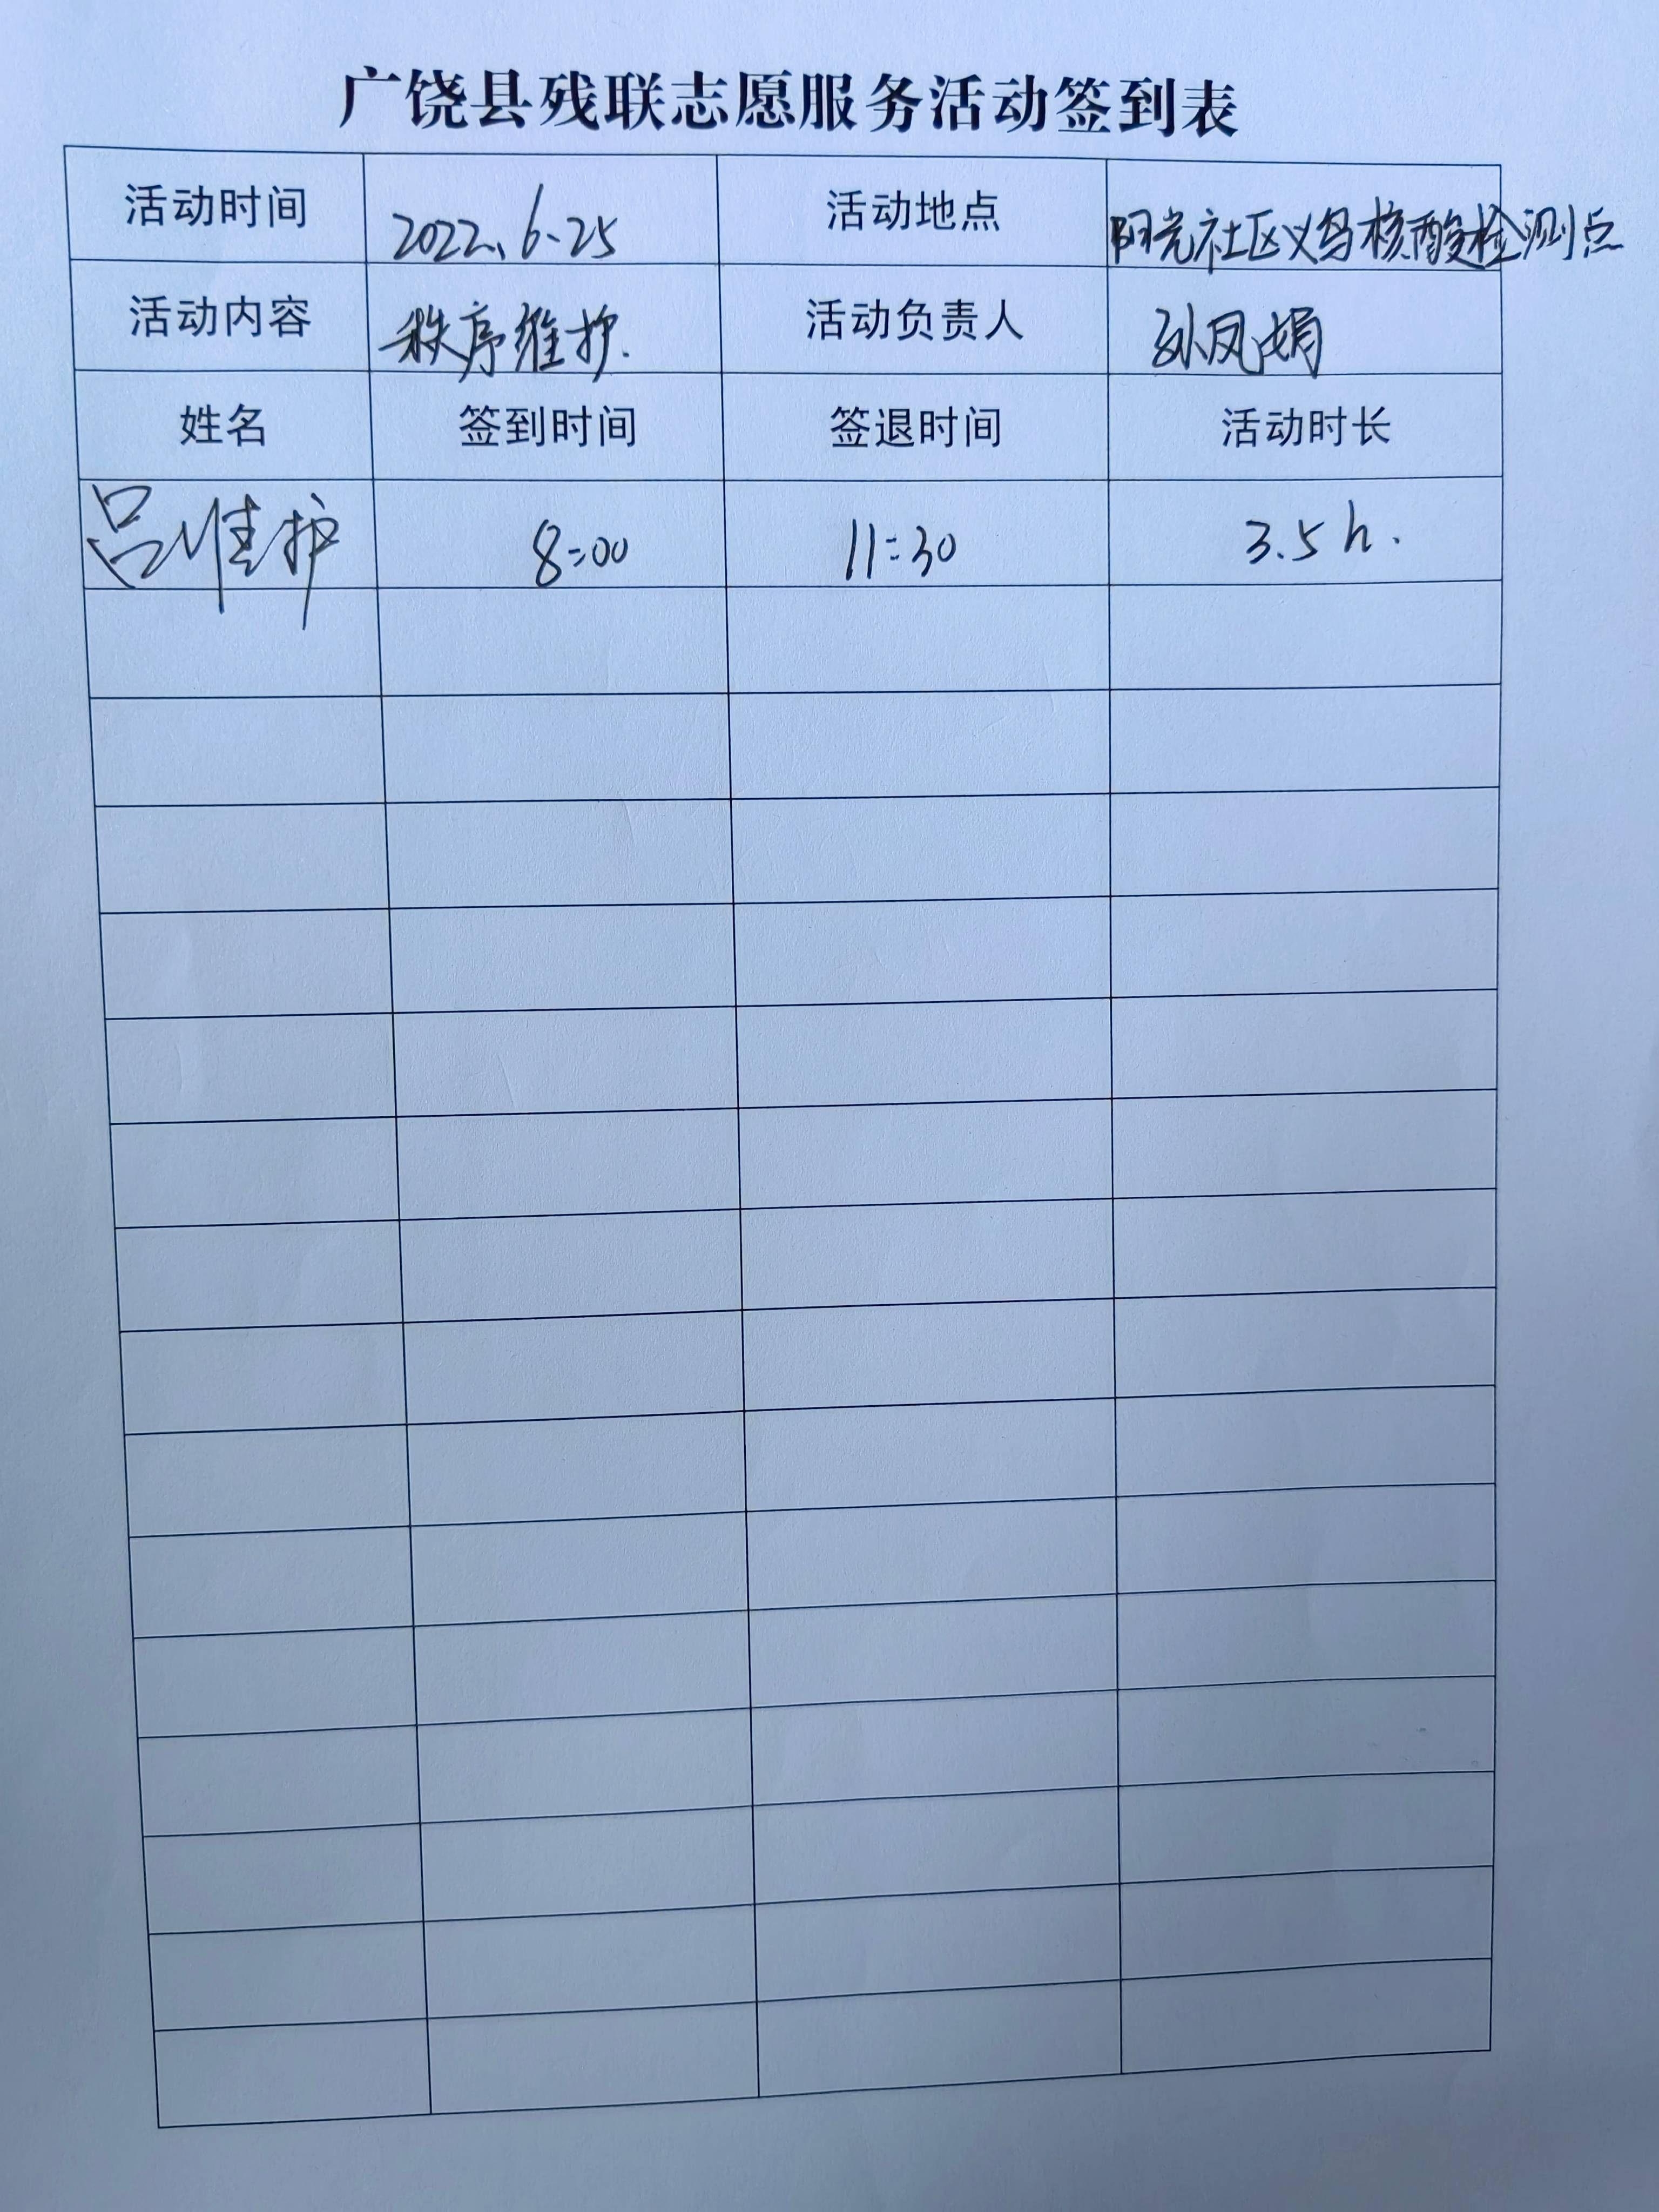 广饶县残联志愿服务活动签到表
活动时间 2022.6.25 活动地点 阳光社区义乌核酸检测点
活动内容 秩序维护. 活动负责人 孙凤娟
姓名 签到时间 签退时间 活动时长
吕维护 8:00 11:30 3.5h.